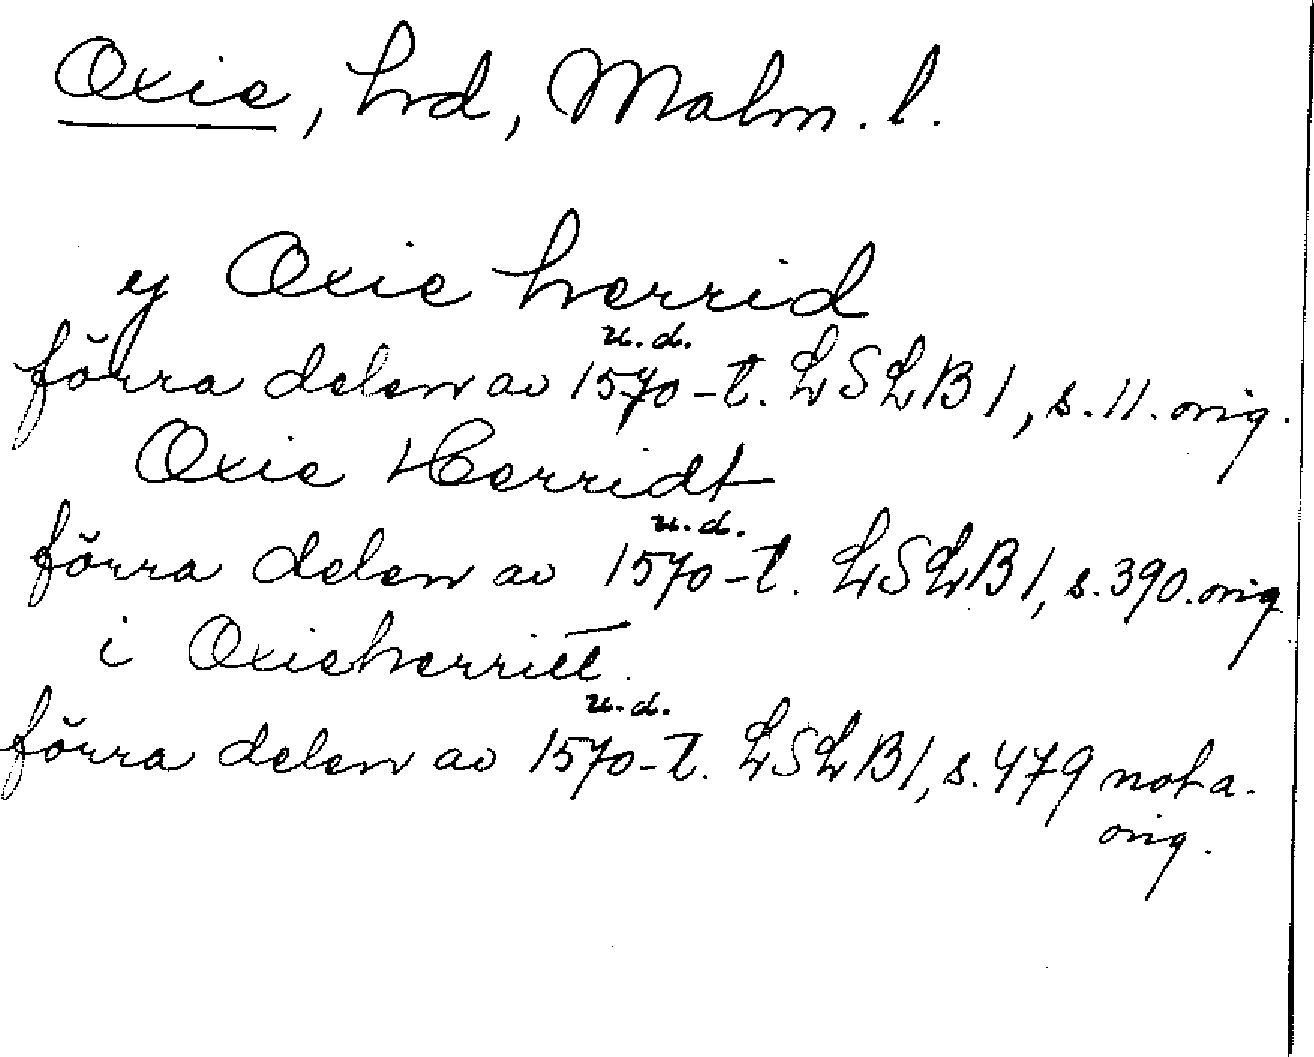 Oxie, hd, Malm. l.
ij Oxie herrid
u.d.
förra delen av 1570-t. LSLB 1, s. 11. orig.
Oxie Herridt
u.d.
förra delen av 1570-t. LSLB 1, s. 390. orig
i Oxieherritt
u.d.
förra delen av 1570-t. LSLB 1, s. 479 not a.
orig.